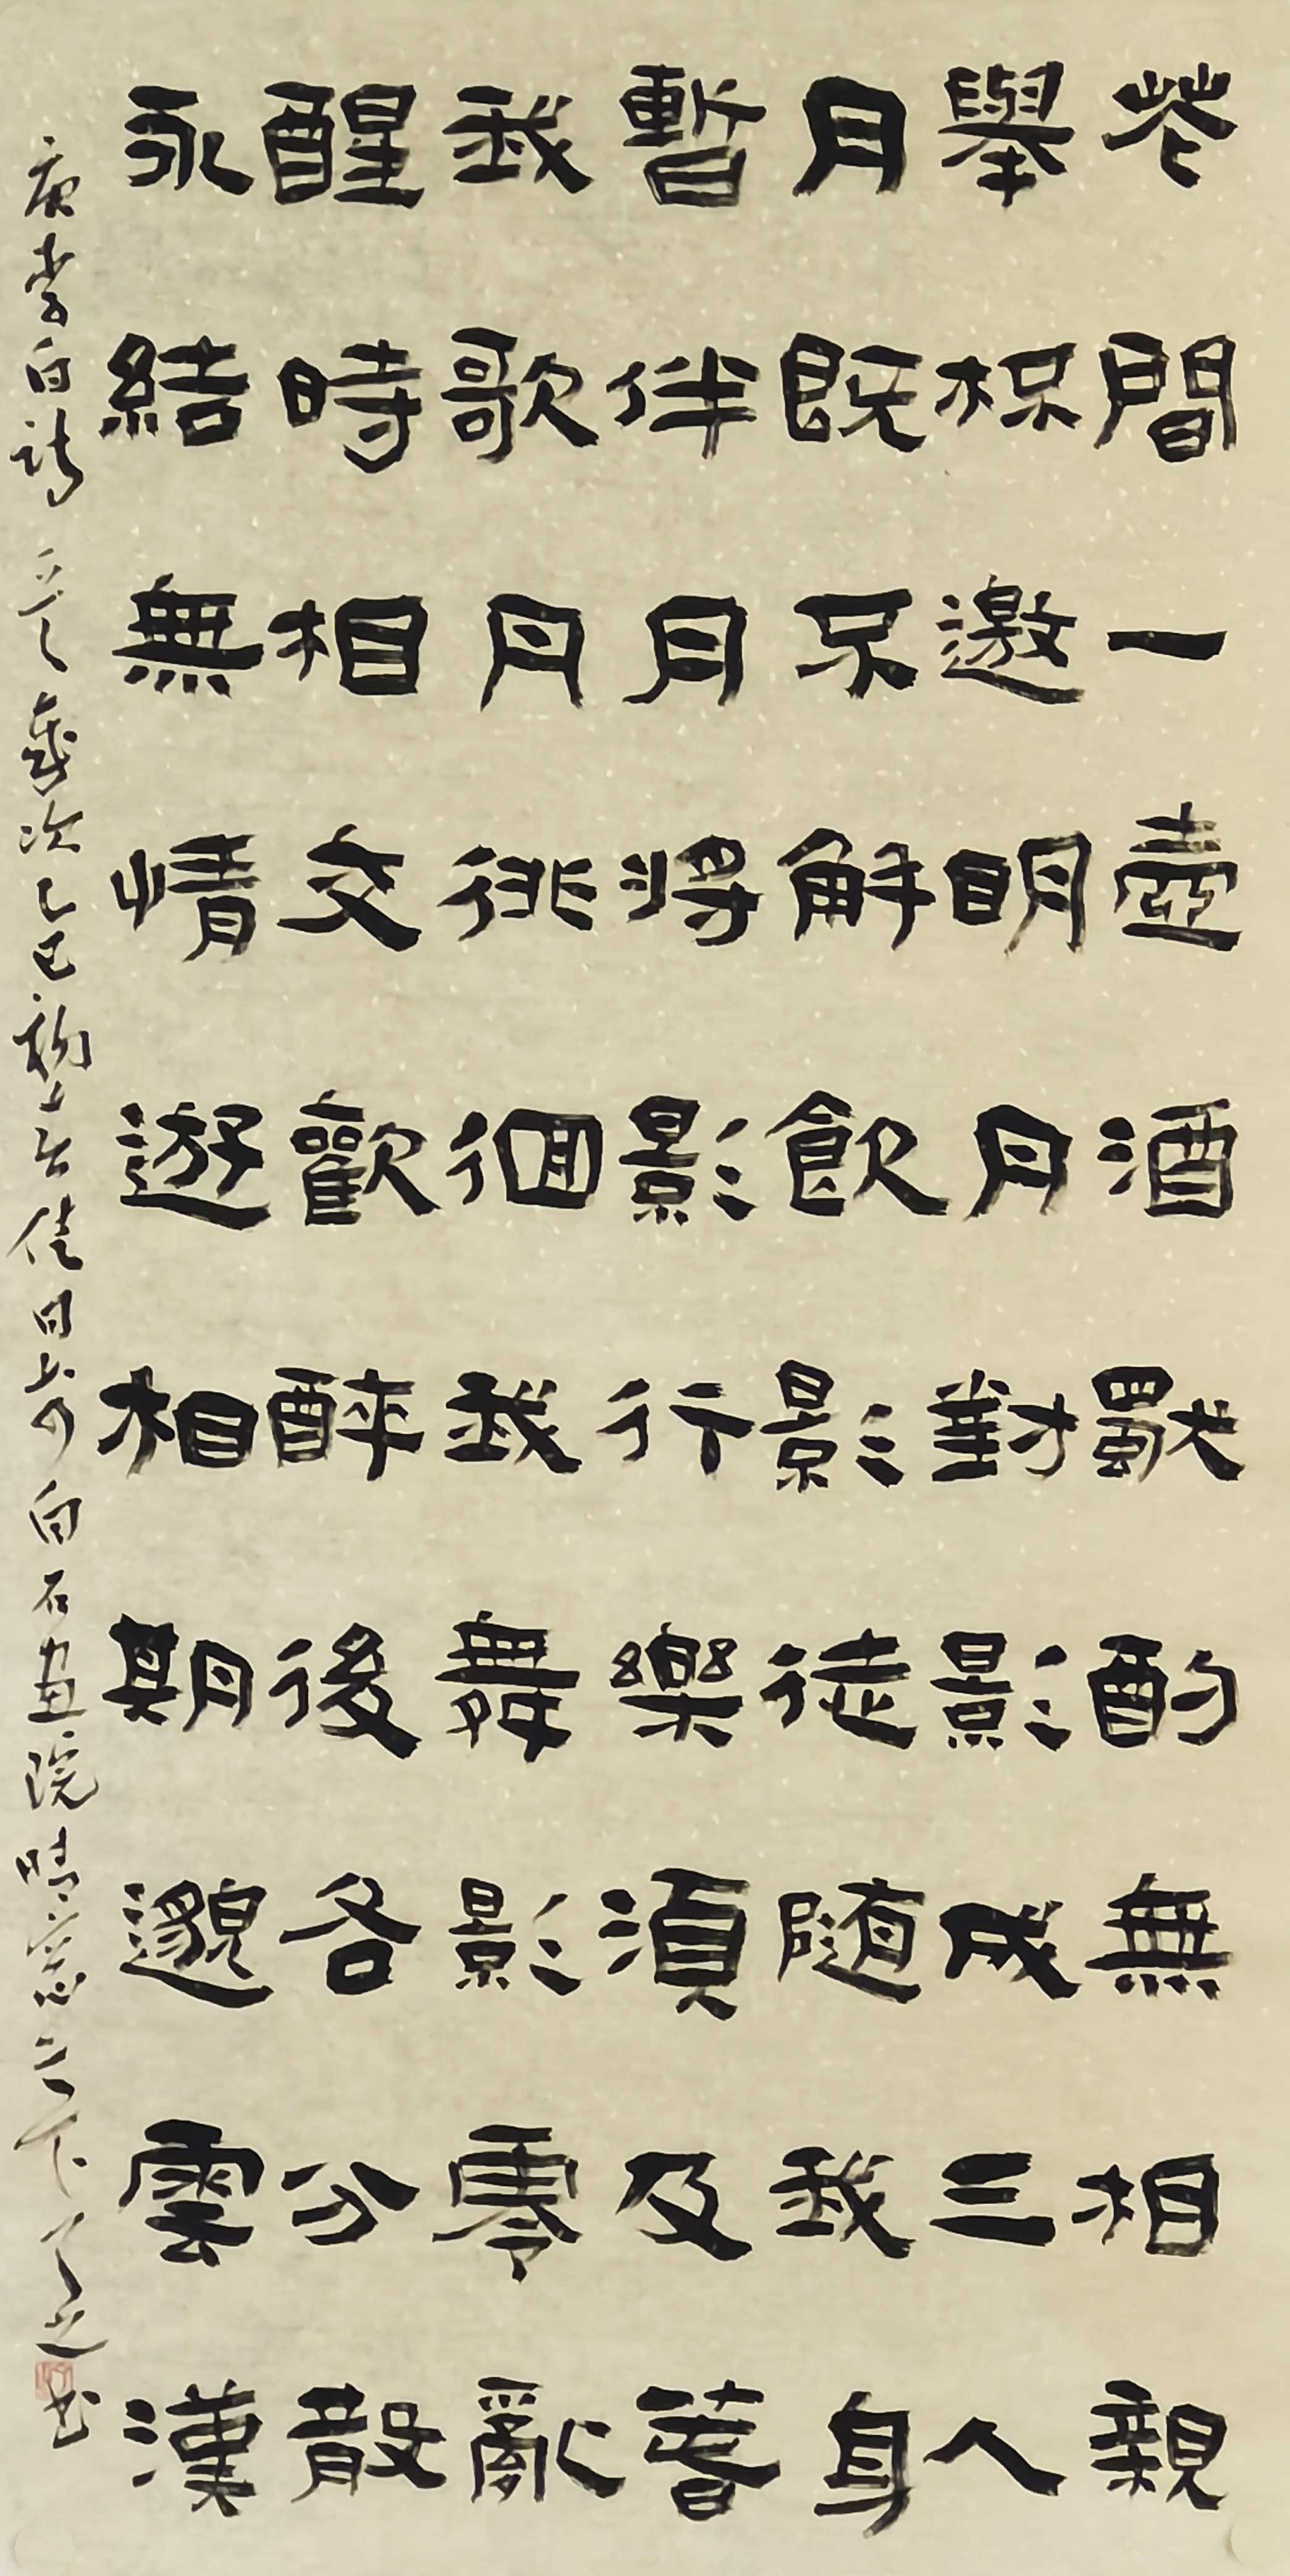 花間一壺酒獨酌無相親
舉杯邀明月對影成三人
月既不解飲影徒随我身
暫伴月將影行樂須及春
我歌月徘徊我舞影零亂
醒時相交歡醉後各分散
永結無情遊相期邈雲漢
唐李白詩一首歲次乙巳初春佳日於白石画院晴窗之下了之书